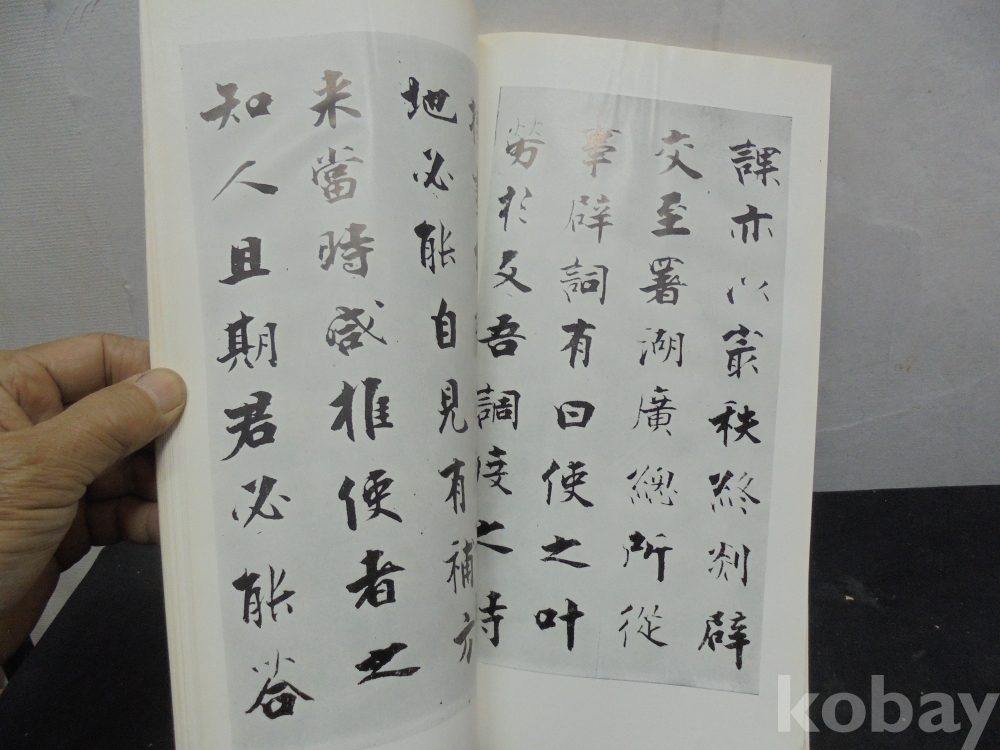 課亦以最秩終剡辟
交至署湖廣總所從
事辟詞有曰使之叶
勞於文吾調度之時
地必能自見有補
来當時咸推使者之
知人且期君必能答
kobay